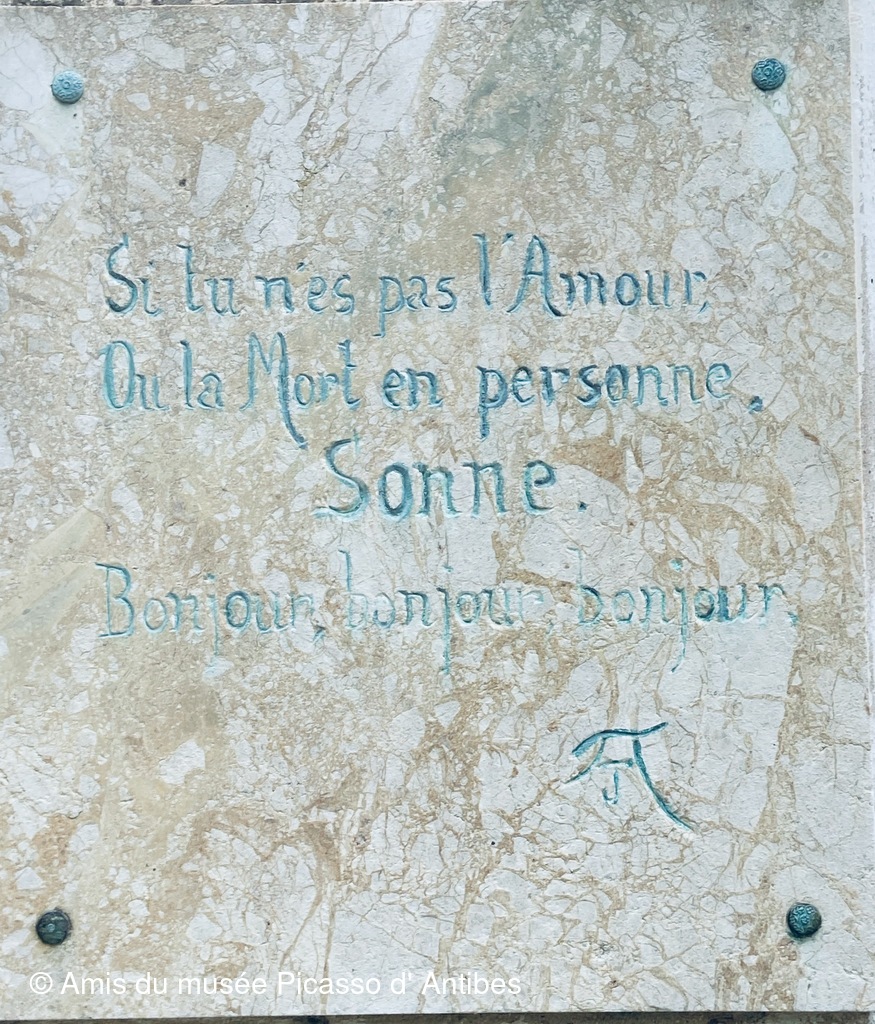 Si tu n'es pas l'Amour,
Ou la Mort en personne,
Sonne.
Bonjour, bonjour, bonjour.
© Amis du musée Picasso d' Antibes